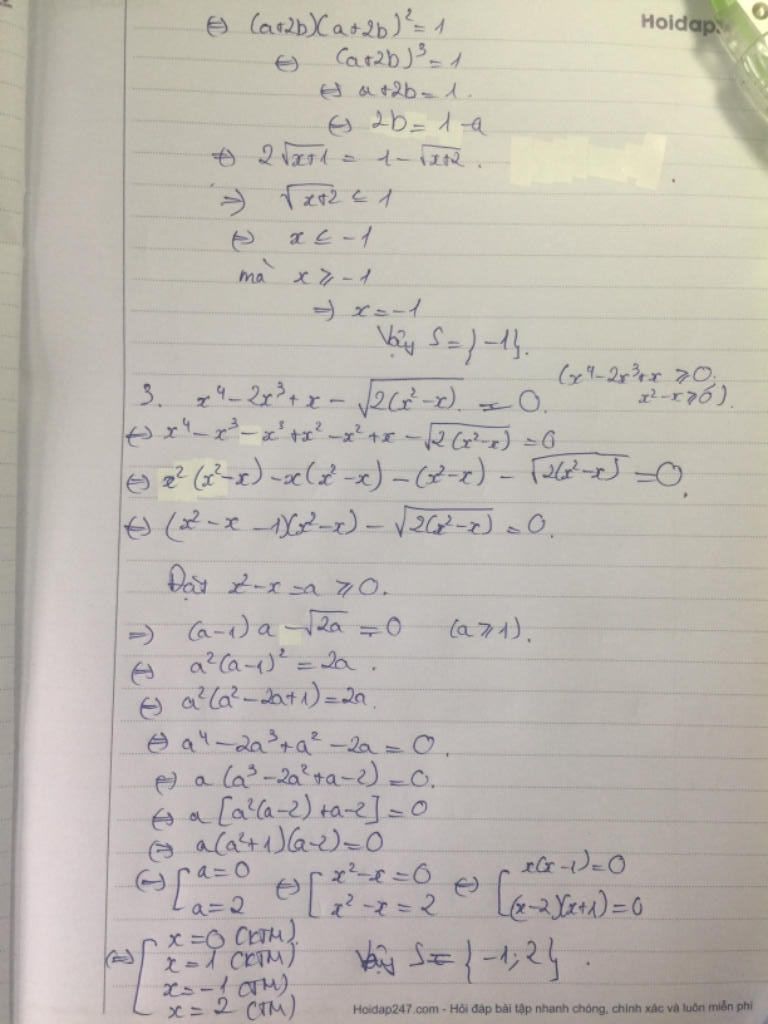 ⇔ (a+2b)(a+2b)² = 1
Hoidap
⇔ (a+2b)³ = 1
⇔ a+2b = 1.
⇔ 2b = 1-a
⇔ 2√(x+1) = 1-√(x+2).
⇒ √(x+2) ≤ 1
⇔ x ≤ -1
mà x ⩾ -1
⇒ x = -1
Vậy S = {-1}.
3. x⁴-2x³+x-√(2(x²-x)) = 0. (x⁴-2x³+x ⩾ 0.
x²-x ⩾ 0).
⇔ x⁴-x³-x³+x²-x²+x-√(2(x²-x)) = 0
⇔ x²(x²-x)-x(x²-x)-(x²-x)-√(2(x²-x)) = 0.
⇔ (x²-x-1)(x²-x)-√(2(x²-x)) = 0.
Đặt x²-x = a ⩾ 0.
⇒ (a-1)a-√(2a) = 0 (a ⩾ 1).
⇔ a²(a-1)² = 2a.
⇔ a²(a²-2a+1) = 2a.
⇔ a⁴-2a³+a²-2a = 0.
⇔ a(a³-2a²+a-2) = 0.
⇔ a[a²(a-2)+a-2] = 0
⇔ a(a²+1)(a-2) = 0
⇔ [a = 0 ⇔ [x²-x = 0 ⇔ [x(x-1) = 0
a = 2 x²-x = 2 (x-2)(x+1) = 0
⇔ [x = 0 (KTM)
x = 1 (KTM) Vậy S = {-1; 2}.
x = -1 (TM)
x = 2 (TM)
Hoidap247.com - Hỏi đáp bài tập nhanh chóng, chính xác và luôn miễn phí